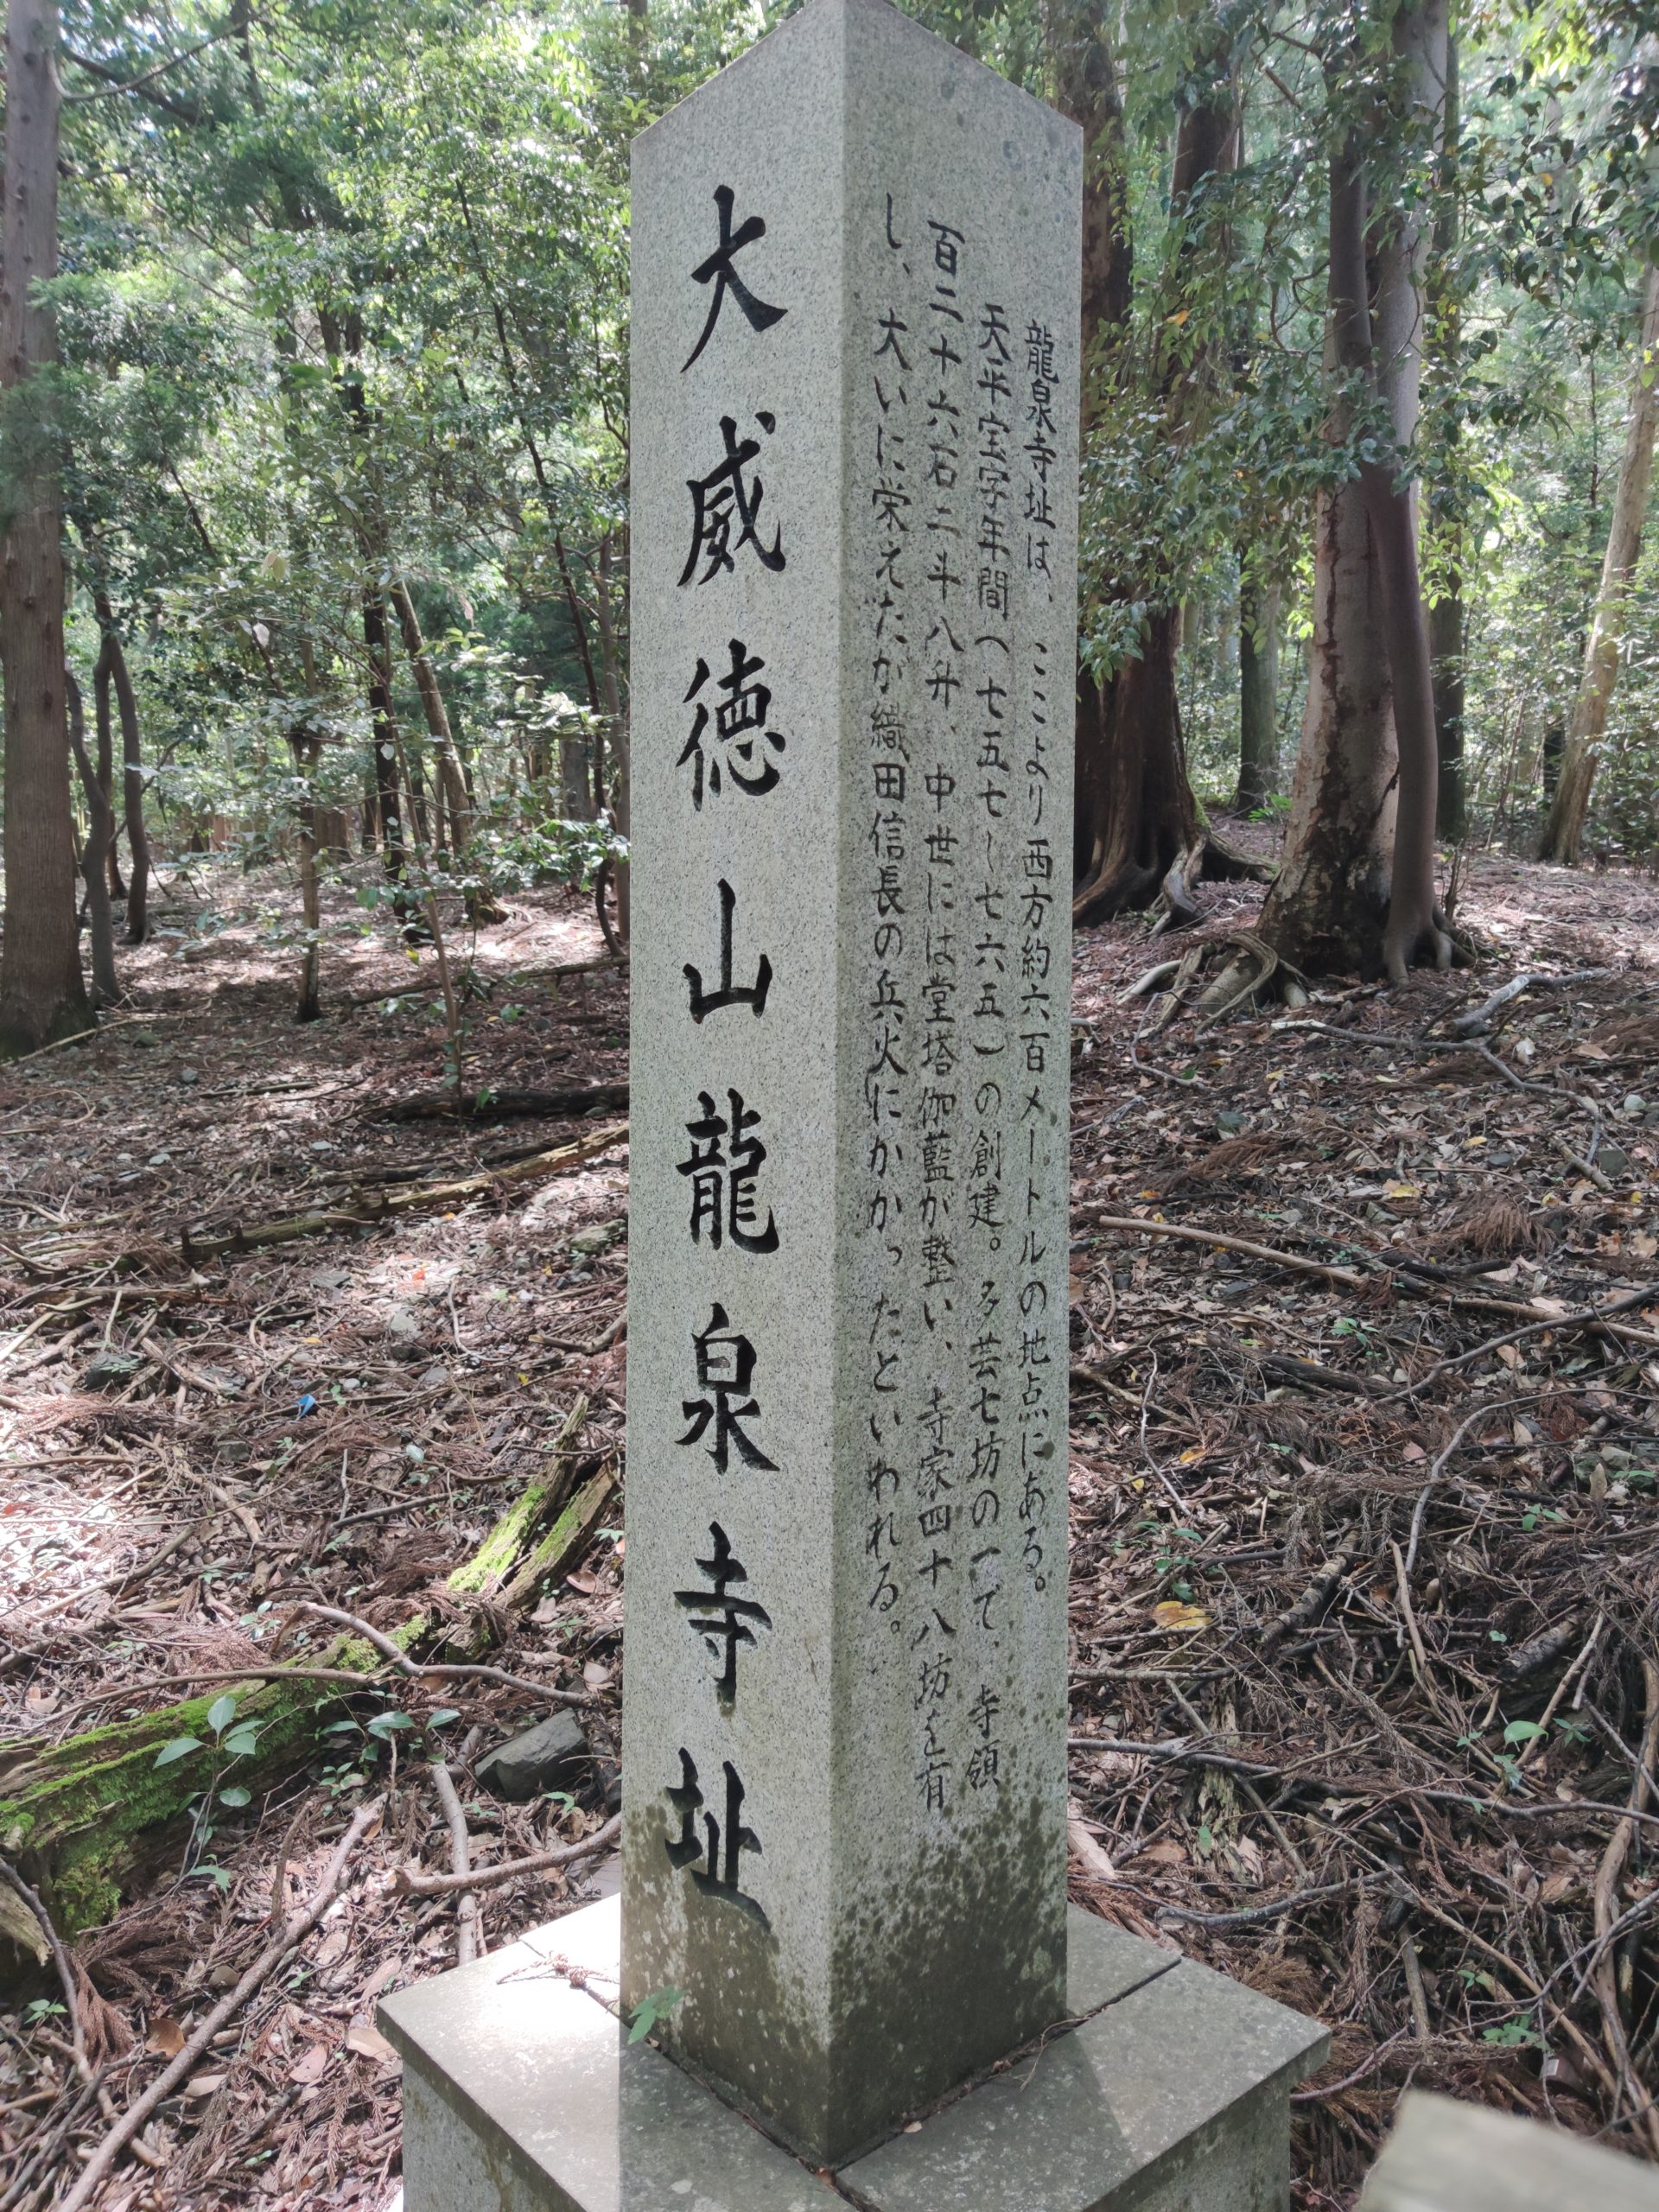 大威徳山龍泉寺址
龍泉寺址は、ここより西方約六百メートルの地点にある。
天平宝字年間(七五七〜七六五)の創建。多芸七坊の一で、寺領
百二十六石二斗八升、中世には堂塔伽藍が整い、寺家四十八坊を有
し、大いに栄えたが織田信長の兵火にかかったといわれる。